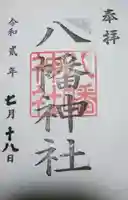 奉拝
八幡神社
令和貳年
七月十八日